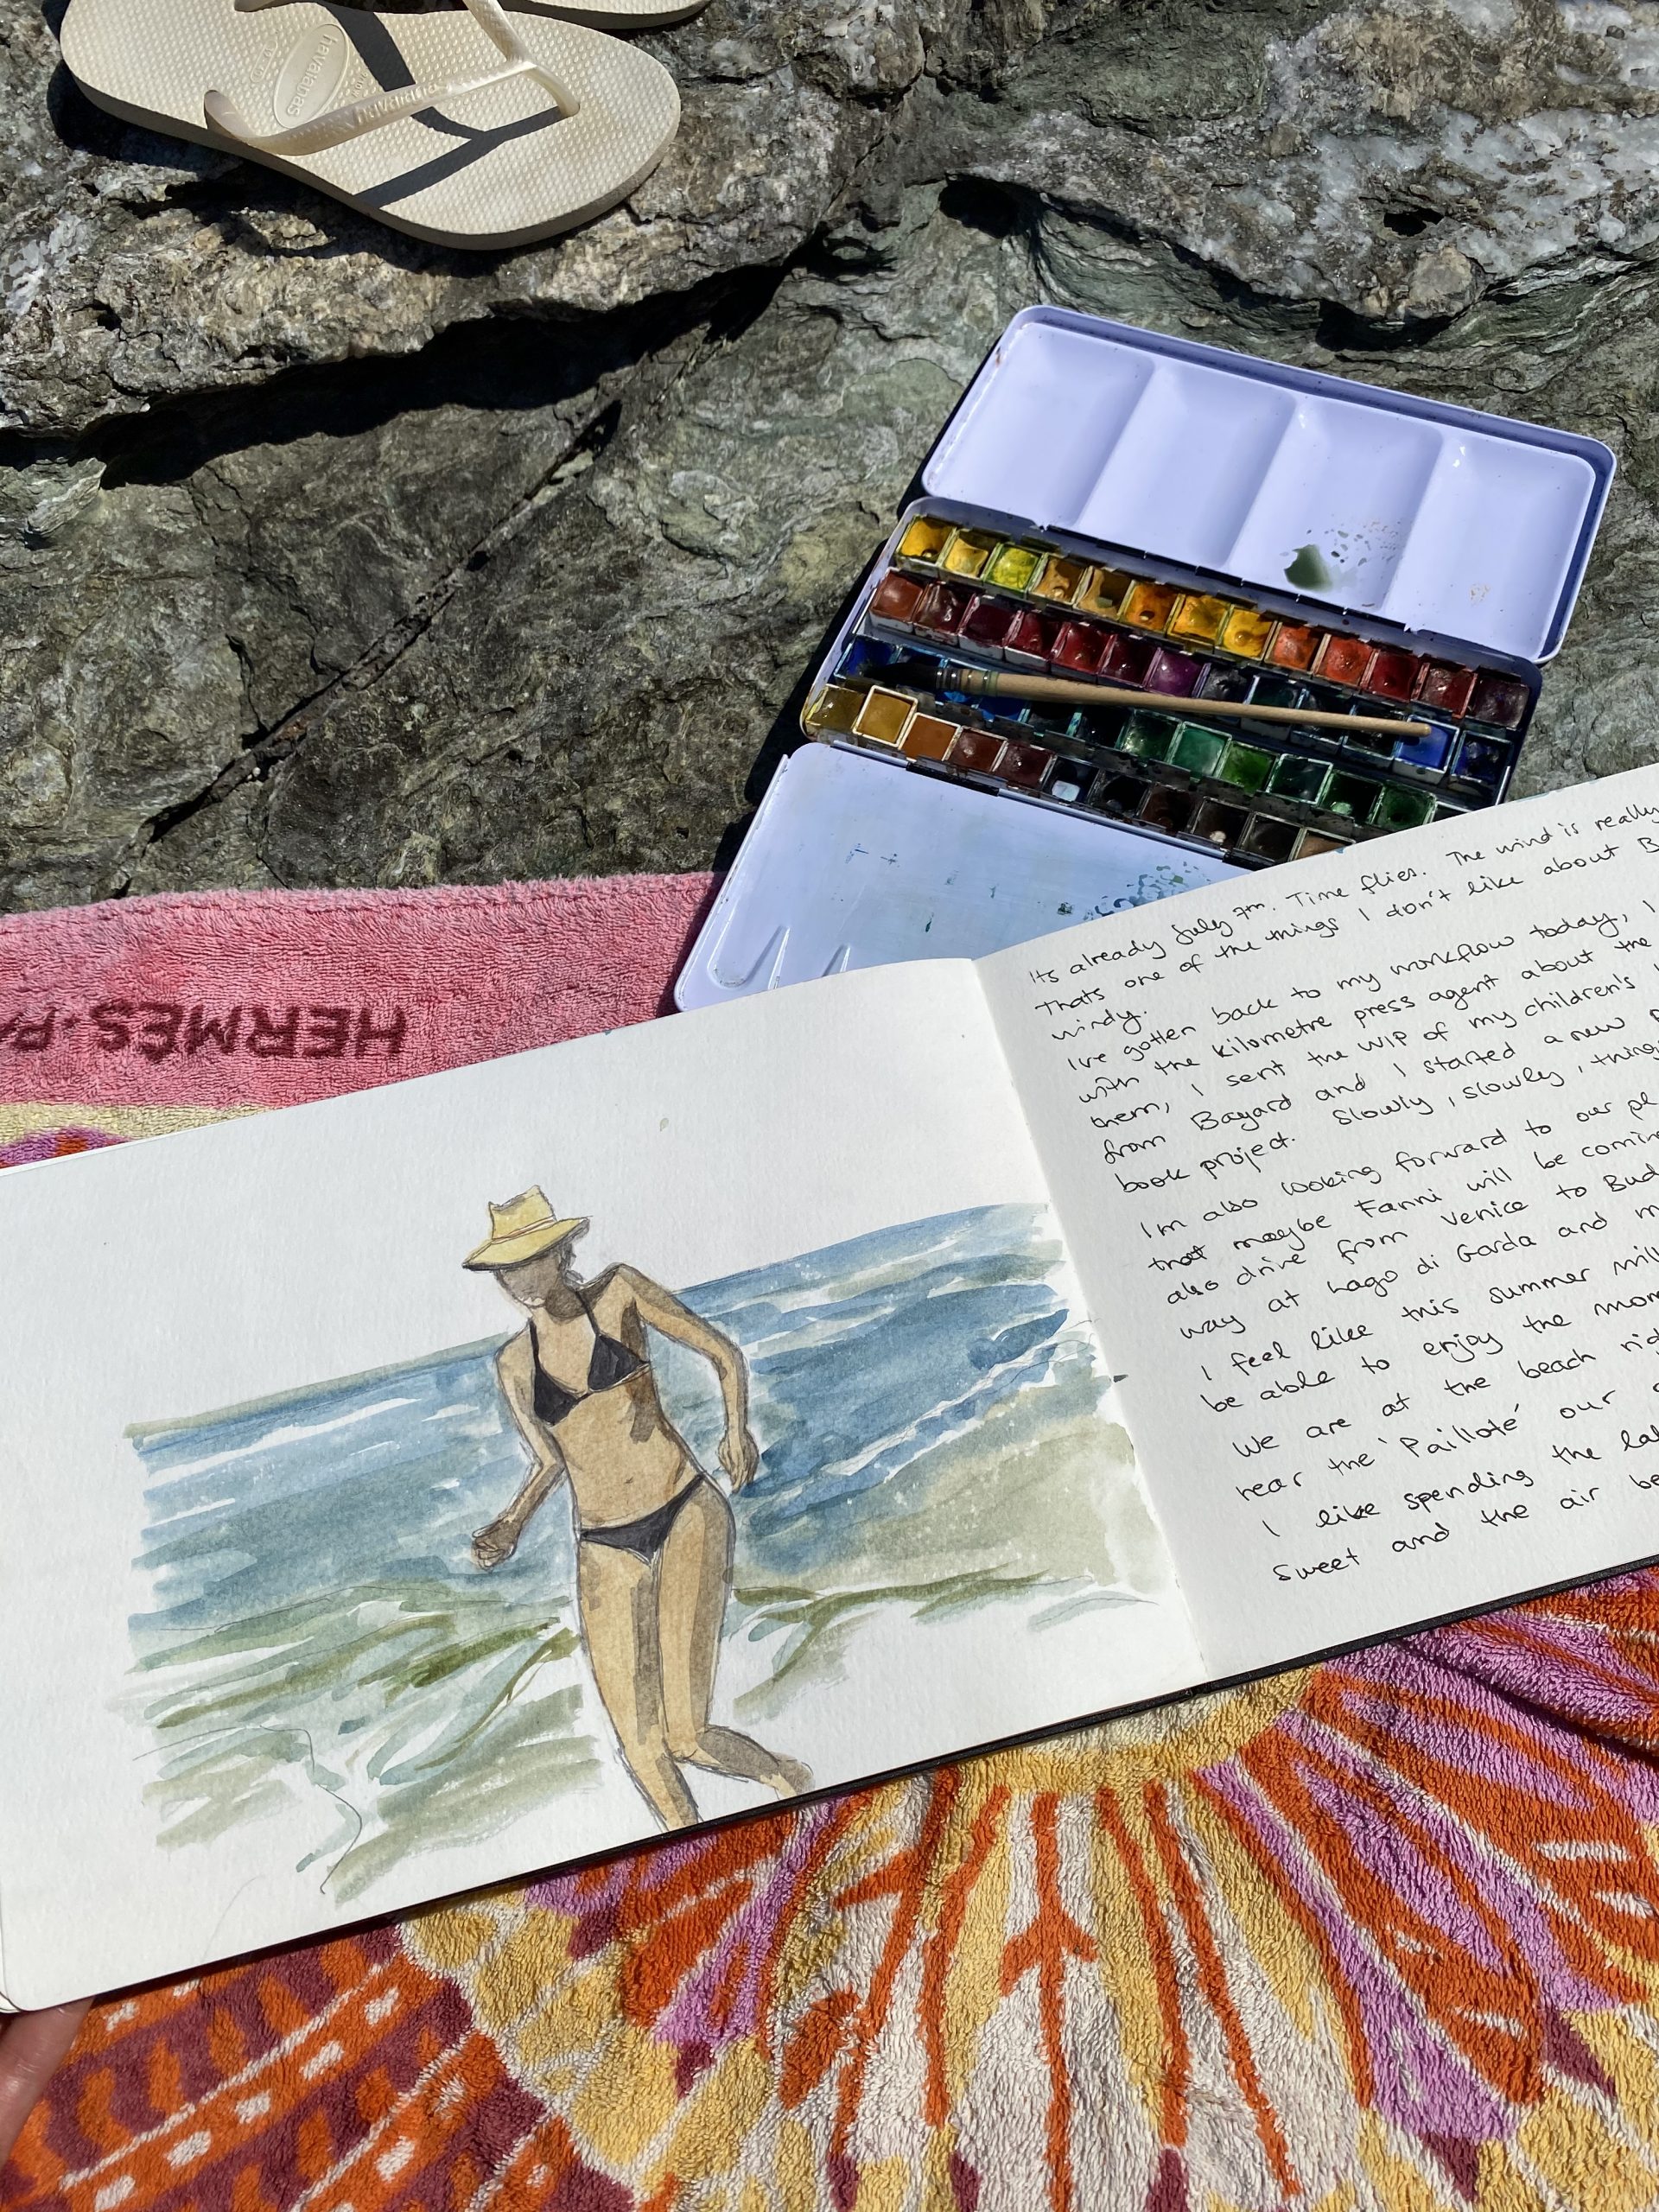 havaianas
havaianas
HERMÈS-PA
Its already July 7th. Time flies. The wind is really
thats one of the things I don't like about B
windy.
Ive gotten back to my workflow today, I
with the kilometre press agent about the
them, I sent the WIP of my children's
from Bayard and I started a new
book project. Slowly, slowly, thing
Im also looking forward to our pl
that maybe Fanni will be comin
also drive from Venice to Bud
way at Lago di Garda and m
I feel like this summer mill
be able to enjoy the mom
We are at the beach rig
near the 'Paillote' our
I like spending the la
sweet and the air be